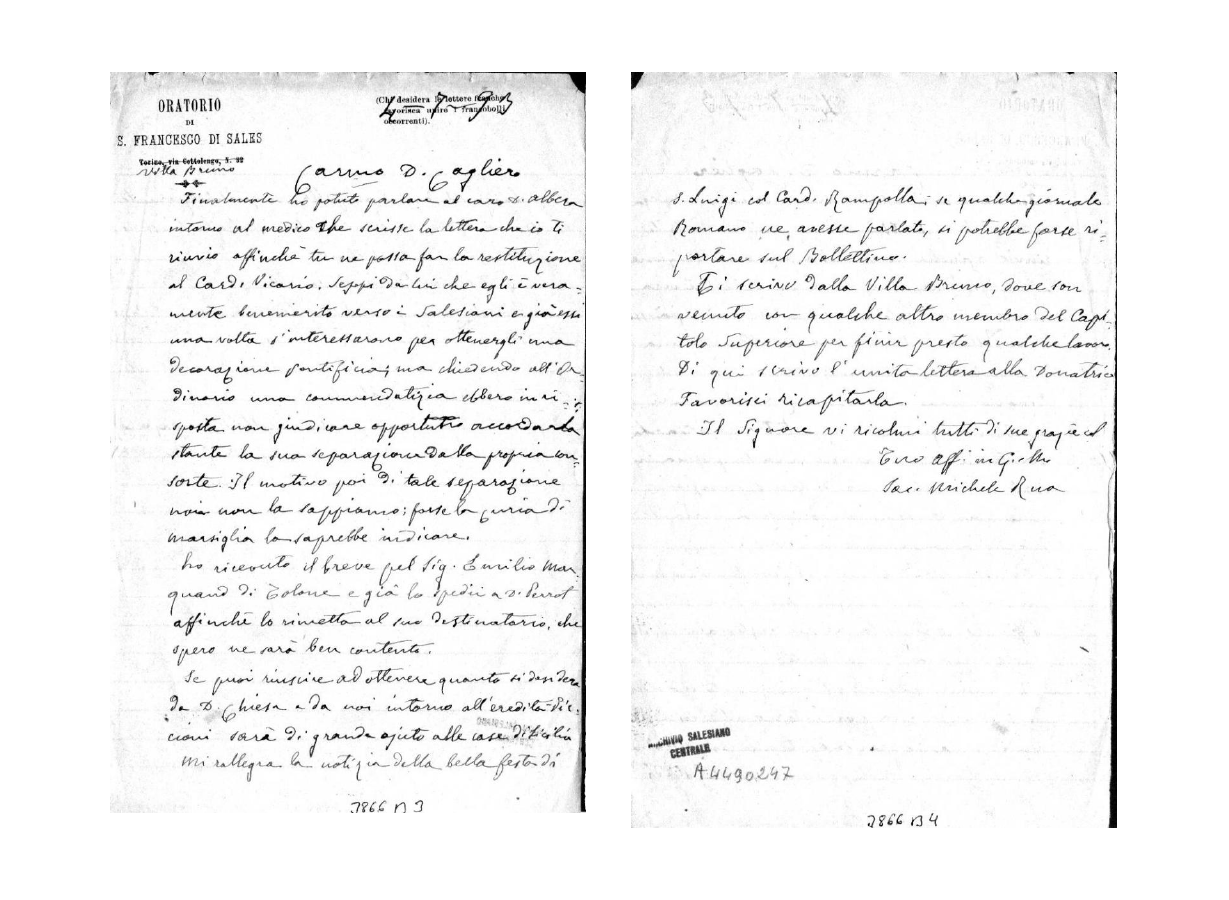 ORATORIO
DI
S. FRANCESCO DI SALES
Torino, via Cottolengo, N. 32
Villa Bruno
(Chi desidera le lettere franche
favorisca unire i francobolli
occorrenti).
4-7-93
Carmo D. Cagliero
Finalmente ho potuto parlare al caro D. Albera
intorno al medico che scrisse la lettera che io ti
rinvio affinchè tu ne possa far la restituzione
al Card. Vicario. Seppi da lui che egli è vera-
mente benemerito verso i Salesiani e già essi
una volta s'interessarono per ottenergli una
decorazione pontificia; ma chiedendo all'Or-
dinario una commendatizia ebbero in ri-
sposta non giudicare opportuno accordarla
stante la sua separazione dalla propria con-
sorte. Il motivo poi di tale separazione
noi non lo sappiamo; forse la Curia di
Marsiglia lo saprebbe indicare.
Ho ricevuto il breve pel Sig. Emilio Mar-
quand di Tolone e già lo spedii a D. Perrot
affinchè lo rimetta al suo destinatario, che
spero ne sarà ben contento.
Se puoi riuscire ad ottenere quanto si desidera
da D. Chiesa e da noi intorno all'eredità
sarà di grande ajuto alle case di Sicilia
Mi rallegra la notizia della bella festa di
2866 B 3
S. Luigi col Card. Rampolla; se qualche giornale
Romano ne avesse parlato, si potrebbe forse ri-
portare sul Bollettino.
Ti scrivo dalla Villa Bruno, dove son
venuto con qualche altro membro del Capi-
tolo Superiore per finir presto qualche lavoro.
Di qui scrivo l'unita lettera alla Donatrice
Favorisci ricapitarla.
Il Signore vi ricolmi tutti di sue grazie ed
Tuo Aff. in G. e M.
Sac. Michele Rua
ARCHIVIO SALESIANO
CENTRALE
A4490247
2866 B 4